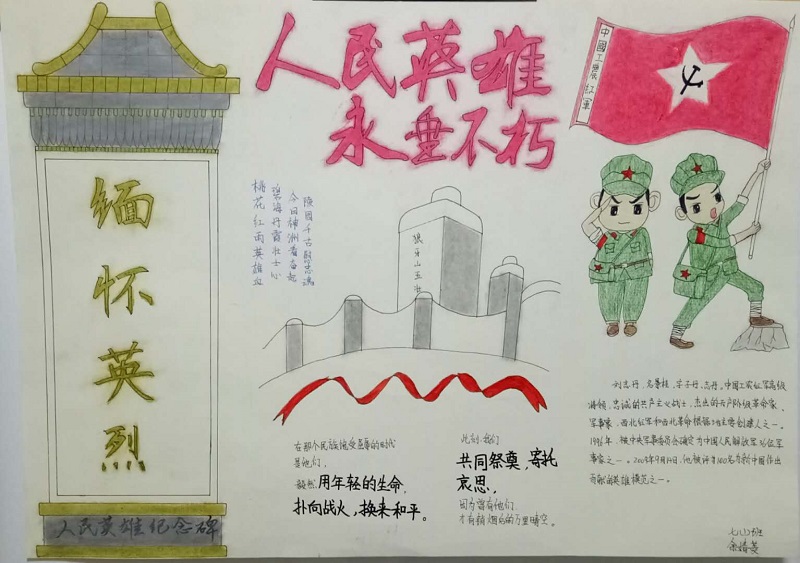 人民英雄
永垂不朽
中國工農紅軍
缅
怀
英
烈
人民英雄纪念碑
今日神洲看奋起
碧海丹霞壮士心
桃花红雨英雄血
狼牙山五壮
在那个民族饱受屈辱的时代
是他们,
用年轻的生命,
扑向战火,换来和平。
此刻,我们
共同祭奠,寄托
哀思,
因为曾有他们,
才有硝烟后的万里晴空。
刘志丹,名景桂,字子丹、志丹。中国工农红军高级
将领,忠诚的共产主义战士,杰出的无产阶级革命家、
军事家,西北红军和西北革命根据地主要创建人之一。
被中央军事委员会确定为中国人民解放军36位军
事家之一。2009年9月14日,他被评为100名为新中国作出
贡献的英雄模范之一。
七(1)班